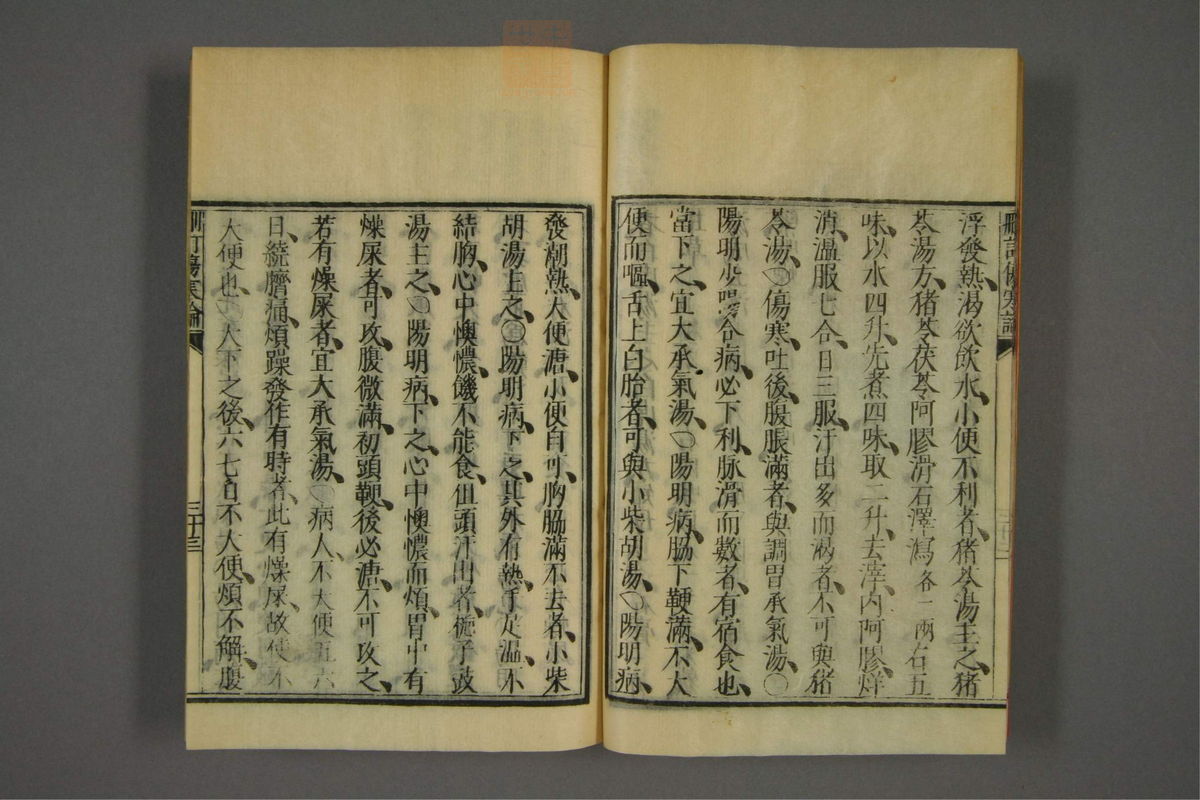 刪訂傷寒論
浮發熱、渴欲飲水、小便不利者、猪苓湯主之、猪
苓湯方、猪苓茯苓阿膠滑石澤瀉各一兩右五
味、以水四升、先煮四味、取二升、去滓、内阿膠、烊
消、溫服七合日三服、汗出多而渴者、不可與猪
苓湯、○傷寒吐後、腹脹滿者、與調胃承氣湯、○
陽明少陽合病、必下利、脉滑而數者、有宿食也、
當下之、宜大承氣湯、○陽明病、脇下鞕滿、不大
便而嘔、舌上白胎者、可與小柴胡湯、○陽明病、
發潮熱、大便溏、小便自可、胸脇滿不去者、小柴
胡湯主之、○陽明病、下之、其外有熱、手足溫、不
結胸、心中懊憹、饑不能食、但頭汗出者、梔子豉
湯主之、○陽明病、下之、心中懊憹而煩、胃中有
燥屎者、可攻、腹微滿、初頭鞕、後必溏、不可攻之、
若有燥屎者、宜大承氣湯、○病人、不大便五六
日、繞臍痛、煩躁、發作有時者、此有燥屎、故使不
大便也、○大下之後、六七日不大便、煩不解、腹
刪訂傷寒論
三十三